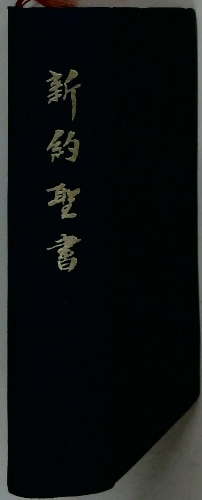 新約聖書